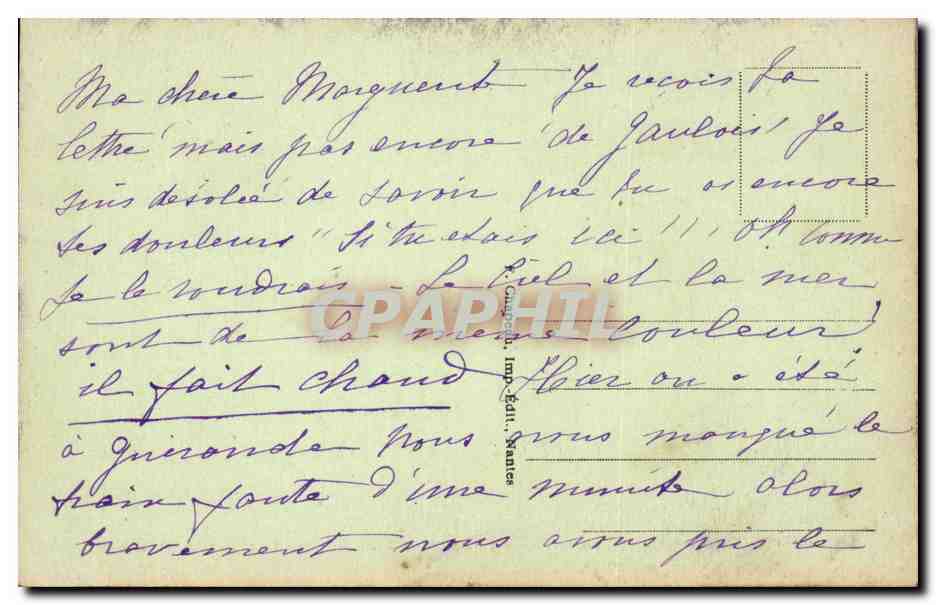 Ma chère Marguerite Je reçois ta
lettre mais pas encore de Gaulois Je
suis désolée de savoir que tu as encore
tes douleurs "Si tu étais ici"!! oh comme
Je le voudrais - Le Ciel et la mer
sont de la même Couleur!
il fait chaud Hier on a été
à Guérande nous avons manqué le
train faute d'une minute alors
bravement nous avons pris le
Chapeau, Imp.-Edit., Nantes
CPAPHIL